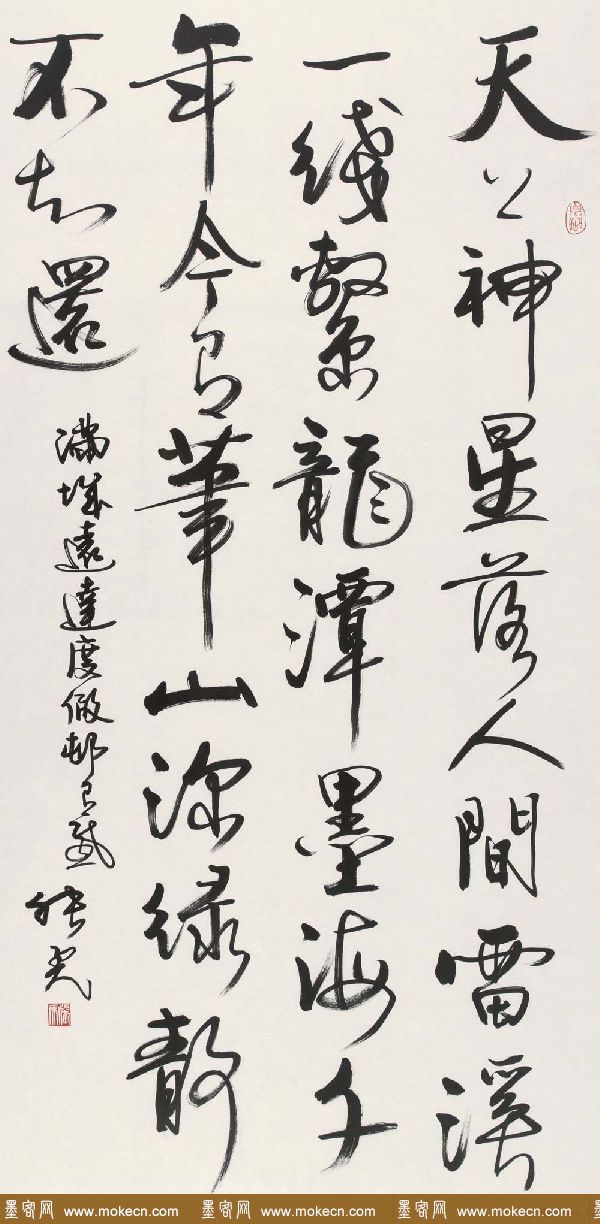 天公神星落人間雷溪
一綫繫龍潭墨海千
年今有筆山深緑静
不知還
滿城遠達度假邨有感
墨客网 www.mokecn.com 墨客网 www.mokecn.com 墨客网 www.mokecn.com